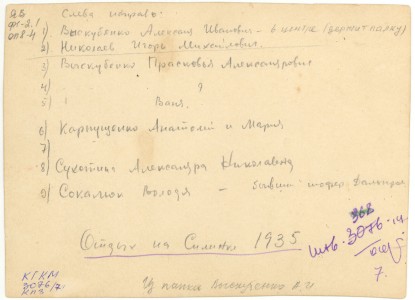 Слева направо:
1) Выскубенко Алексей Иванович - в центре (держит палку)
2) Николаев Игорь Михайлович.
3) Выскубенко Прасковья Александровна
4) ?
5) Ваня.
6) Карпущенко Анатолий и Мария
7)
8) Сухотина Александра Николаевна
9) Сокалюк Володя - бывший шофер
Отдых на Силинке 1935
368
инв. 3076-14
7.
КГКМ
3076/7.
Из папки Выскубенко А.И